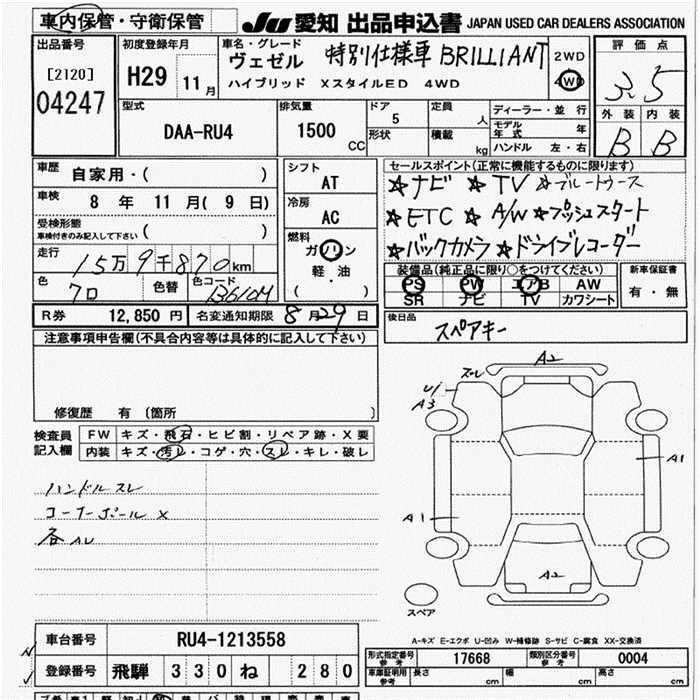 車内保管・守衛保管 JU 愛知 出品申込書 JAPAN USED CAR DEALERS ASSOCIATION
出品番号 初度登録年月 車名・グレード 特別仕様車 BRILLIANT 2WD 評価点
[2120] H29 11月 ヴェゼル 4WD 3.5
04247 ハイブリッド XスタイルED 4WD
型式 排気量 ドア 定員 ディーラー・並行 外装 内装
DAA-RU4 1500 CC 5 人 モデル年式 年 B B
形状 積載 kg ハンドル 左・右
車歴 自家用・( ) シフト AT セールスポイント(正常に機能するものに限ります)
車検 8 年 11 月( 9 日) 冷房 AC ☆ナビ ☆TV ☆ブルートゥース
受検形態 ☆ETC ☆A/W ☆プッシュスタート
車検付きのみ記入して下さい ( ) 燃料 ガソリン ☆バックカメラ ☆ドライブレコーダー
走行 15万9千870km 軽・油 装備品(純正品に限り○をつけてください) 新車保証書
色 クロ 色替 色コード ( ) PS PW エアB AW 有・無
SR ナビ TV カワシート
R券 12,850 円 名変通知期限 8月29日 後日品
スペアキー
注意事項申告欄(不具合内容等は具体的に記入して下さい)
修復歴 有 (箇所 )
A2
ズレ
U/
A3
検査員 FW キズ・飛石・ヒビ割・リペア跡・X要
記入欄 内装 キズ・汚レ・コゲ・穴・スレ・キレ・破レ
A1
ハンドルスレ
コーナーポール X
A1
各AU
A2
スペア
A-キズ E-エクボ U-凹み W-補修跡 S-サビ C-腐食 XX-交換済
車台番号 RU4-1213558
型式指定番号 参考 17668 類別区分番号 参考 0004
登録番号 飛騨 330 ね 280
車庫証明用 参考 長さ cm 幅 cm 高さ cm